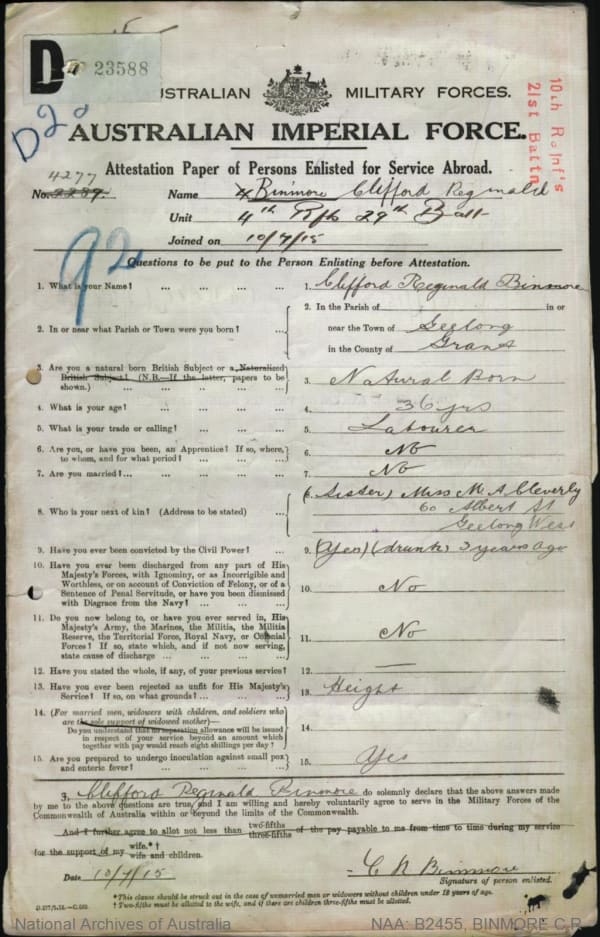 D
23588
D20
AUSTRALIAN MILITARY FORCES.
AUSTRALIAN IMPERIAL FORCE.
10th Reinf's
21st Battn
Attestation Paper of Persons Enlisted for Service Abroad.
4277
No. 2289. Name Binmore Clifford Reginald
Unit 4th Rfts 29th Batt
Joined on 10/7/15
92
Questions to be put to the Person Enlisting before Attestation.
1. What is your Name? ... ... ... ... 1. Clifford Reginald Binmore
2. In or near what Parish or Town were you born? ... 2. In the Parish of in or
near the Town of Geelong
in the County of Grant
3. Are you a natural born British Subject or a Naturalised
British Subject? (N.B.—If the latter, papers to be
shown.) ... ... ... ... 3. Natural Born
4. What is your age? ... ... ... ... 4. 36 yrs
5. What is your trade or calling? ... ... ... 5. Labourer
6. Are you, or have you been, an Apprentice? If so, where,
to whom, and for what period? ... ... ... 6. No
7. Are you married?... ... ... ... ... 7. No
8. Who is your next of kin? (Address to be stated) ... 8. (Sister) Miss M. A Cleverly
60 Albert St
Geelong West
9. Have you ever been convicted by the Civil Power? ... 9. (Yes) (drunk) 3 years ago
10. Have you ever been discharged from any part of His
Majesty's Forces, with Ignominy, or as Incorrigible and
Worthless, or on account of Conviction of Felony, or of a
Sentence of Penal Servitude, or have you been dismissed
with Disgrace from the Navy? ... ... ... 10. No
11. Do you now belong to, or have you ever served in, His
Majesty's Army, the Marines, the Militia, the Militia
Reserve, the Territorial Force, Royal Navy, or Colonial
Forces? If so, state which, and if not now serving,
state cause of discharge ... ... ... ... 11. No
12. Have you stated the whole, if any, of your previous service? 12. —
13. Have you ever been rejected as unfit for His Majesty's
Service? If so, on what grounds? ... ... ... 13. Height
14. (For married men, widowers with children, and soldiers who
are the sole support of widowed mother)—
Do you understand that no separation allowance will be issued
in respect of your service beyond an amount which
together with pay would reach eight shillings per day? 14.
15. Are you prepared to undergo inoculation against small pox
and enteric fever? ... ... ... ... 15. Yes
I, Clifford Reginald Binmore do solemnly declare that the above answers made
by me to the above questions are true, and I am willing and hereby voluntarily agree to serve in the Military Forces of the
Commonwealth of Australia within or beyond the limits of the Commonwealth.
And I further agree to allot not less than two-fifths three-fifths of the pay payable to me from time to time during my service
for the support of my wife.*† wife and children.
Date 10/7/15 C R Binmore
Signature of person enlisted.
*This clause should be struck out in the case of unmarried men or widowers without children under 18 years of age.
†Two-fifths must be allotted to the wife, and if there are children three-fifths must be allotted.
National Archives of Australia NAA: B2455, BINMORE C R